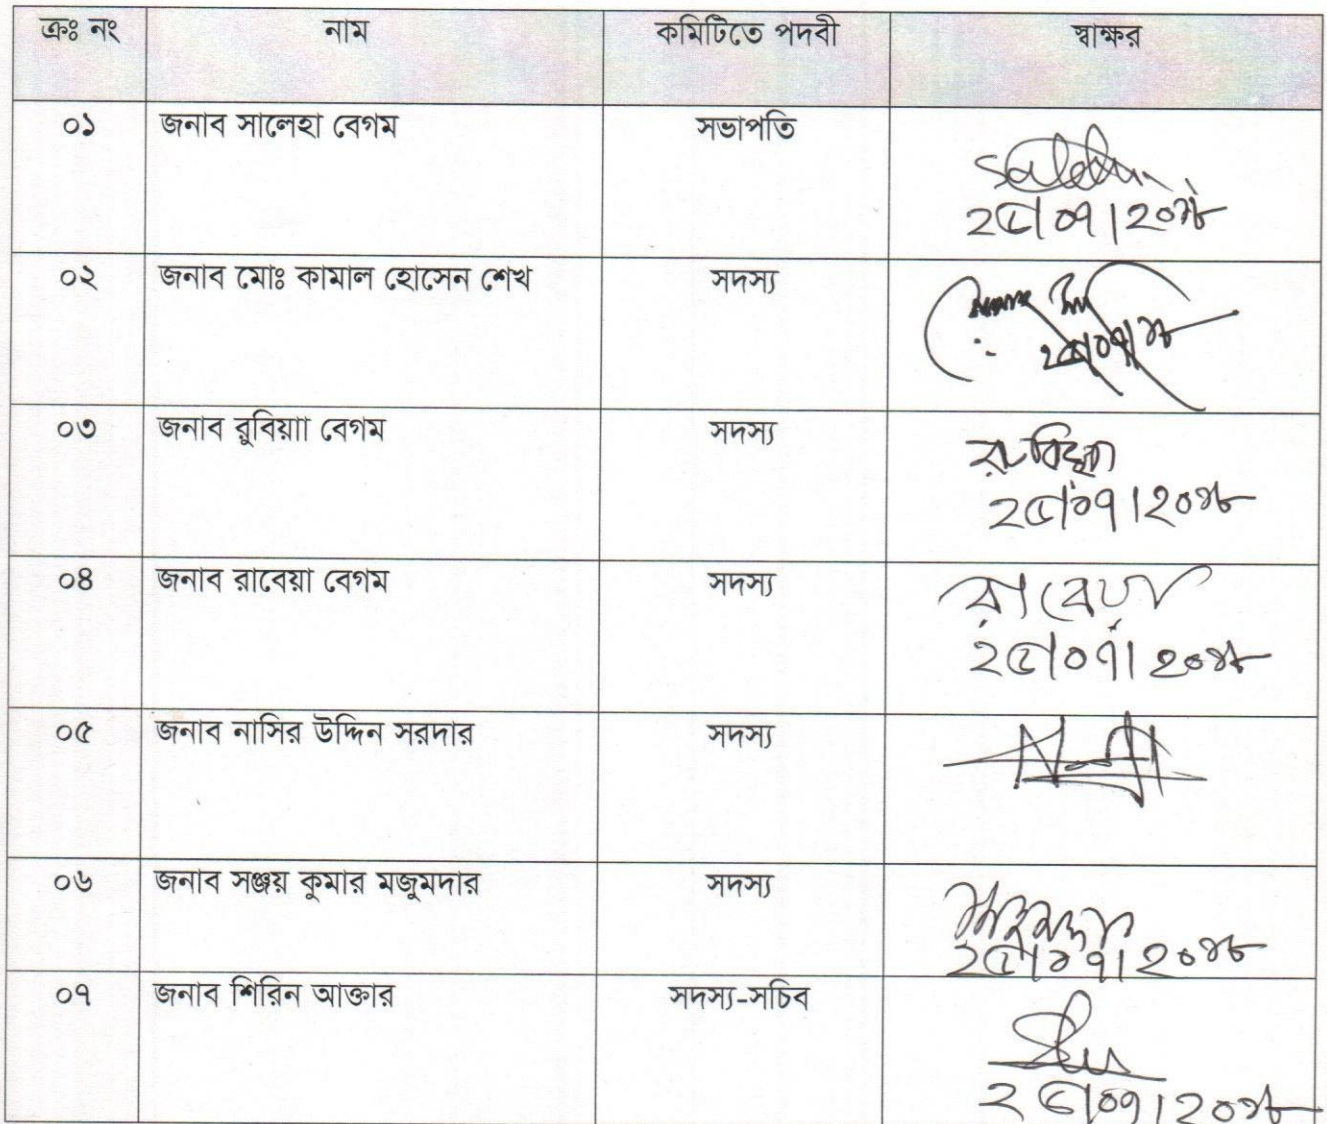 ক্রঃ নং নাম কমিটিতে পদবী স্বাক্ষর
০১ জনাব সালেহা বেগম সভাপতি
Saleha
২৫/০৭/২০১৮
০২ জনাব মোঃ কামাল হোসেন শেখ সদস্য
২৫/০৭/১৮
০৩ জনাব রুবিয়াা বেগম সদস্য
রুবিয়া
২৫/০৭/২০১৮
০৪ জনাব রাবেয়া বেগম সদস্য
রাবেয়া
২৫/০৭/২০১৮
০৫ জনাব নাসির উদ্দিন সরদার সদস্য
০৬ জনাব সঞ্জয় কুমার মজুমদার সদস্য
২৫/০৭/২০১৮
০৭ জনাব শিরিন আক্তার সদস্য-সচিব
২৫/০৭/২০১৮